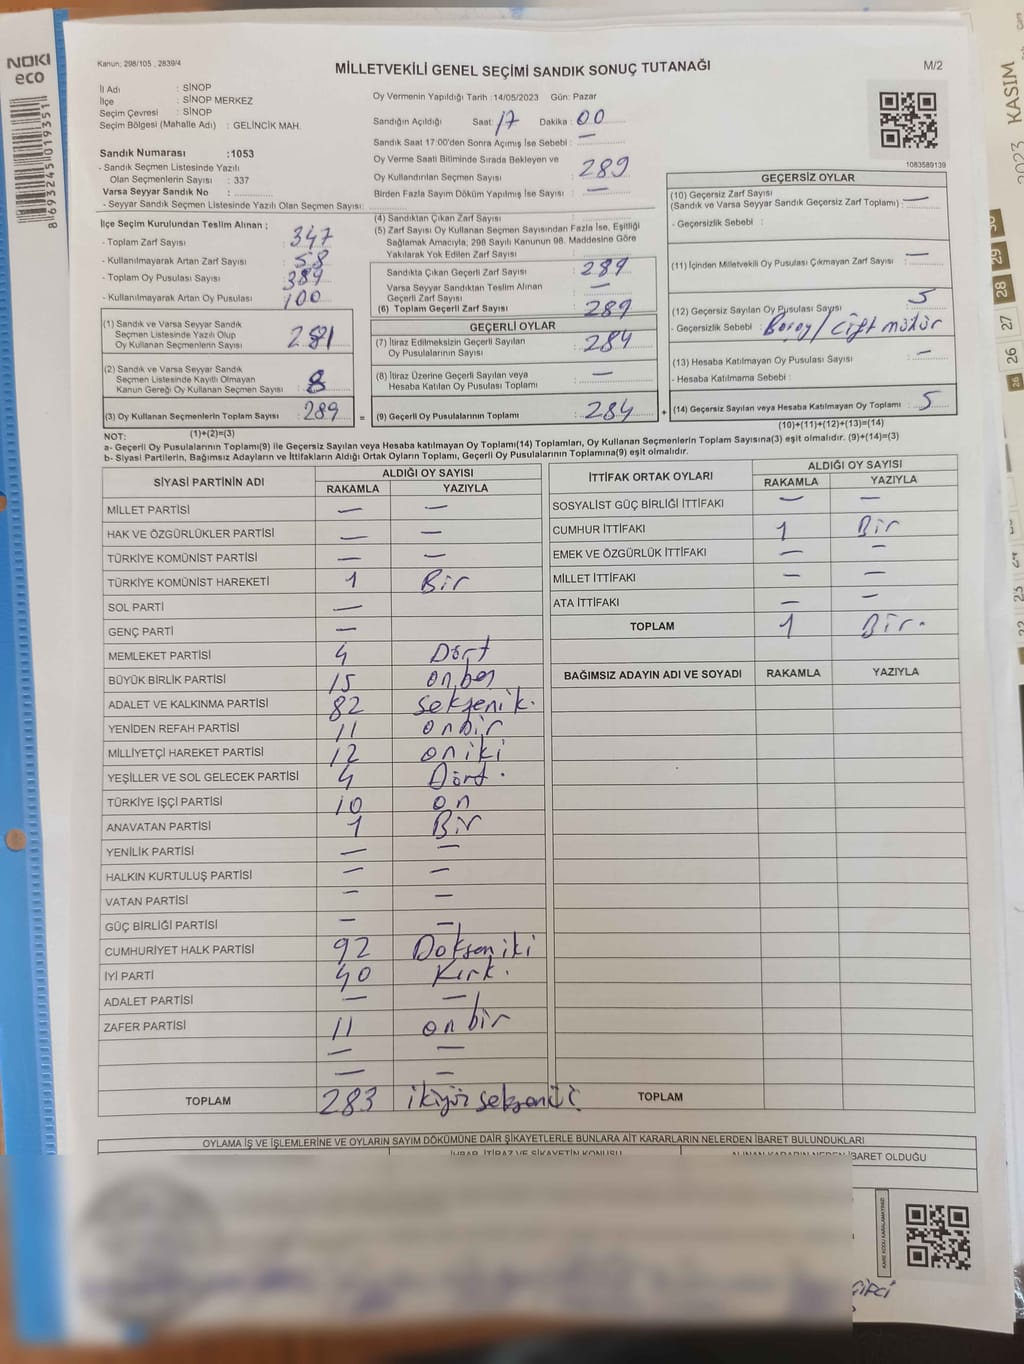 NOKI
eco
8693245019351
2023 KASIM
Kanun; 298/105 , 2839/4
MİLLETVEKİLİ GENEL SEÇİMİ SANDIK SONUÇ TUTANAĞI
M/2
İl Adı : SİNOP
İlçe : SİNOP MERKEZ
Seçim Çevresi : SİNOP
Seçim Bölgesi (Mahalle Adı) : GELİNCİK MAH.
Sandık Numarası :1053
- Sandık Seçmen Listesinde Yazılı
Olan Seçmenlerin Sayısı : 337
Varsa Seyyar Sandık No :
- Seyyar Sandık Listesinde Yazılı Olan Seçmen Sayısı:
Oy Vermenin Yapıldığı Tarih :14/05/2023 Gün: Pazar
Sandığın Açıldığı Saat: 17 Dakika : 00
Sandık Saat 17:00'den Sonra Açımış İse Sebebi : —
Oy Verme Saati Bitiminde Sırada Bekleyen ve
Oy Kullandırılan Seçmen Sayısı : 289
Birden Fazla Sayım Döküm Yapılmış İse Sayısı : —
1083589139
İlçe Seçim Kurulundan Teslim Alınan ;
- Toplam Zarf Sayısı : 347
- Kullanılmayarak Artan Zarf Sayısı : 58
- Toplam Oy Pusulası Sayısı : 389
- Kullanılmayarak Artan Oy Pusulası : 100
(1) Sandık ve Varsa Seyyar Sandık
Seçmen Listesinde Yazılı Olup
Oy Kullanan Seçmenlerin Sayısı : 281
(2) Sandık ve Varsa Seyyar Sandık
Seçmen Listesinde Kayıtlı Olmayan
Kanun Gereği Oy Kullanan Seçmen Sayısı : 8
(3) Oy Kullanan Seçmenlerin Toplam Sayısı : 289
(1)+(2)=(3)
(4) Sandıktan Çıkan Zarf Sayısı :
(5) Zarf Sayısı Oy Kullanan Seçmen Sayısından Fazla İse, Eşitliği
Sağlamak Amacıyla; 298 Sayılı Kanunun 98. Maddesine Göre
Yakılarak Yok Edilen Zarf Sayısı :
Sandıkta Çıkan Geçerli Zarf Sayısı : 289
Varsa Seyyar Sandıktan Teslim Alınan
Geçerli Zarf Sayısı : —
(6) Toplam Geçerli Zarf Sayısı : 289
GEÇERLİ OYLAR
(7) İtiraz Edilmeksizin Geçerli Sayılan
Oy Pusulalarının Sayısı : 284
(8) İtiraz Üzerine Geçerli Sayılan veya
Hesaba Katılan Oy Pusulası Toplamı : —
= (9) Geçerli Oy Pusulalarının Toplamı : 284
GEÇERSİZ OYLAR
(10) Geçersiz Zarf Sayısı
(Sandık ve Varsa Seyyar Sandık Geçersiz Zarf Toplamı) : —
- Geçersizlik Sebebi :
(11) İçinden Milletvekili Oy Pusulası Çıkmayan Zarf Sayısı : —
(12) Geçersiz Sayılan Oy Pusulası Sayısı : 5
- Geçersizlik Sebebi : Boroy / Çift mühür
(13) Hesaba Katılmayan Oy Pusulası Sayısı : —
- Hesaba Katılmama Sebebi :
+ (14) Geçersiz Sayılan veya Hesaba Katılmayan Oy Toplamı : 5
(10)+(11)+(12)+(13)=(14)
NOT:
a- Geçerli Oy Pusulalarının Toplamı(9) ile Geçersiz Sayılan veya Hesaba katılmayan Oy Toplamı(14) Toplamları, Oy Kullanan Seçmenlerin Toplam Sayısına(3) eşit olmalıdır. (9)+(14)=(3)
b- Siyasi Partilerin, Bağımsız Adayların ve İttifakların Aldığı Ortak Oyların Toplamı, Geçerli Oy Pusulalarının Toplamına(9) eşit olmalıdır.
SİYASİ PARTİNİN ADI ALDIĞI OY SAYISI
RAKAMLA YAZIYLA
MİLLET PARTİSİ — —
HAK VE ÖZGÜRLÜKLER PARTİSİ — —
TÜRKİYE KOMÜNİST PARTİSİ — —
TÜRKİYE KOMÜNİST HAREKETİ 1 Bir
SOL PARTİ —
GENÇ PARTİ —
MEMLEKET PARTİSİ 4 Dört
BÜYÜK BİRLİK PARTİSİ 15 onbeş
ADALET VE KALKINMA PARTİSİ 82 seksenik.
YENİDEN REFAH PARTİSİ 11 onbir
MİLLİYETÇİ HAREKET PARTİSİ 12 oniki
YEŞİLLER VE SOL GELECEK PARTİSİ 4 Dört.
TÜRKİYE İŞÇİ PARTİSİ 10 on
ANAVATAN PARTİSİ 1 Bir
YENİLİK PARTİSİ — —
HALKIN KURTULUŞ PARTİSİ — —
VATAN PARTİSİ — —
GÜÇ BİRLİĞİ PARTİSİ — —
CUMHURİYET HALK PARTİSİ 92 Doksaniki
İYİ PARTİ 40 Kırk.
ADALET PARTİSİ — —
ZAFER PARTİSİ 11 onbir
— —
— —
TOPLAM 283 ikiyüz seksenüç
İTTİFAK ORTAK OYLARI ALDIĞI OY SAYISI
RAKAMLA YAZIYLA
SOSYALİST GÜÇ BİRLİĞİ İTTİFAKI — —
CUMHUR İTTİFAKI 1 Bir
EMEK VE ÖZGÜRLÜK İTTİFAKI — —
MİLLET İTTİFAKI — —
ATA İTTİFAKI — —
TOPLAM 1 Bir.
BAĞIMSIZ ADAYIN ADI VE SOYADI RAKAMLA YAZIYLA
TOPLAM
OYLAMA İŞ VE İŞLEMLERİNE VE OYLARIN SAYIM DÖKÜMÜNE DAİR ŞİKAYETLERLE BUNLARA AİT KARARLARIN NELERDEN İBARET BULUNDUKLARI
İHBAR, İTİRAZ VE ŞİKAYETİN KONUSU
ALINAN KARARIN NEDEN İBARET OLDUĞU
KARE KODU KARALAMAYINIZ!